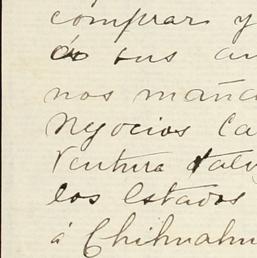 comprar y
á sus au
nos maña
Negocios la
Ventura
los Estados
á Chihuahu